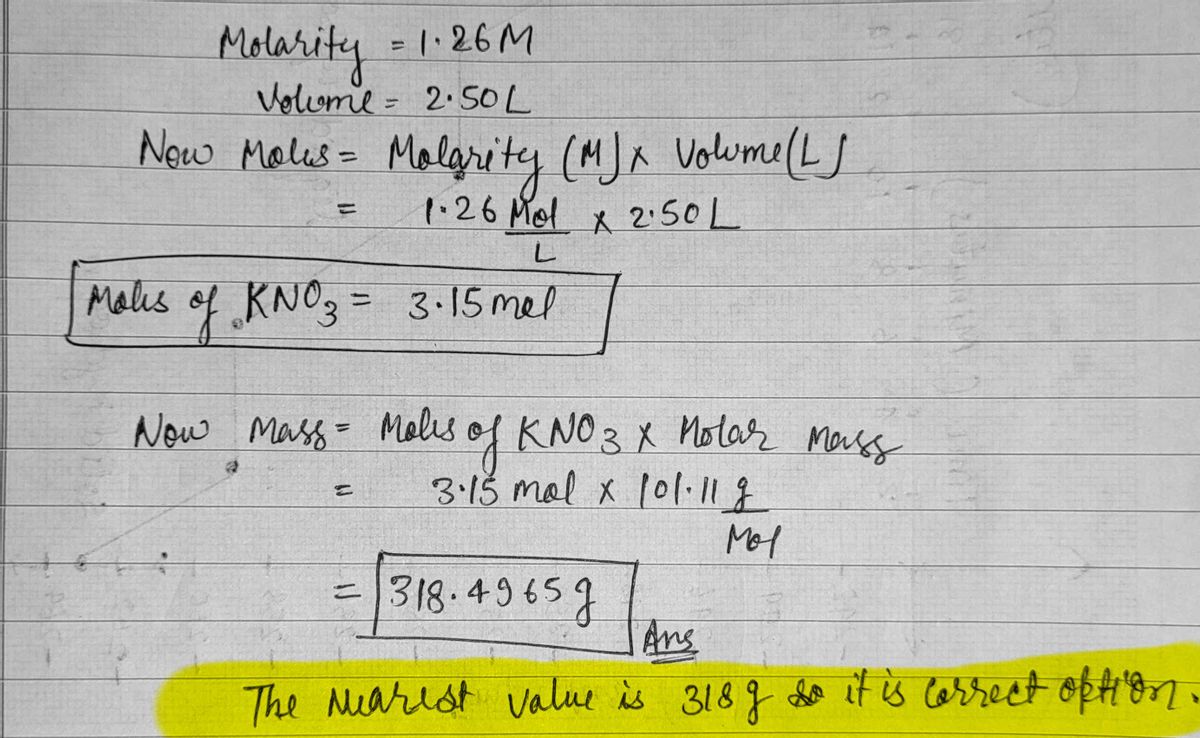 Molarity = 1.26 M
Volume = 2.50 L
Now Moles = Molarity (M) x Volume (L)
= 1.26 Mol/L x 2.50 L
Moles of KNO₃ = 3.15 mol
Now Mass = Moles of KNO₃ x Molar Mass
= 3.15 mol x 101.11 g/Mol
= 318.4965 g
Ans
The Nearest value is 318 g so it is correct option.